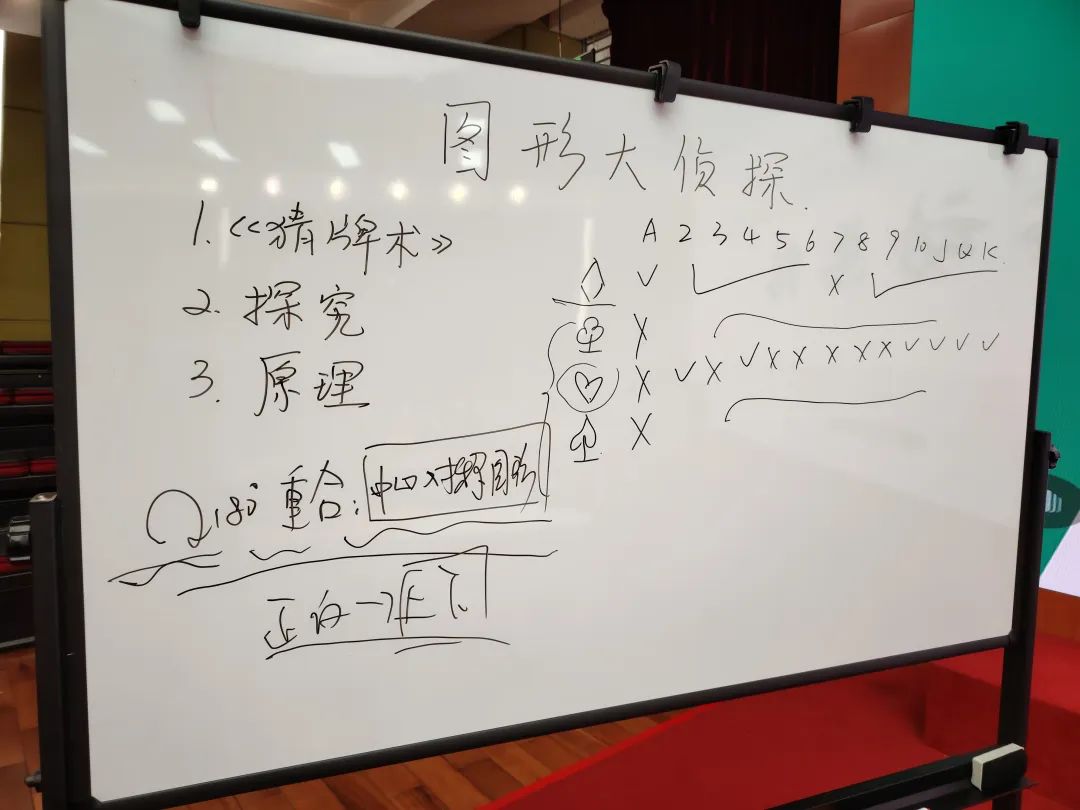 图形大侦探.
1.《猜牌术》
2. 探究
3. 原理
180° 重合: 中心对称图形
正向→
A 2 3 4 5 6 7 8 9 10 J Q K
♢ ✓ ✓ X ✓
♧ X
♡ X ✓ X ✓ X X X X X ✓ ✓ ✓ ✓
♤ X